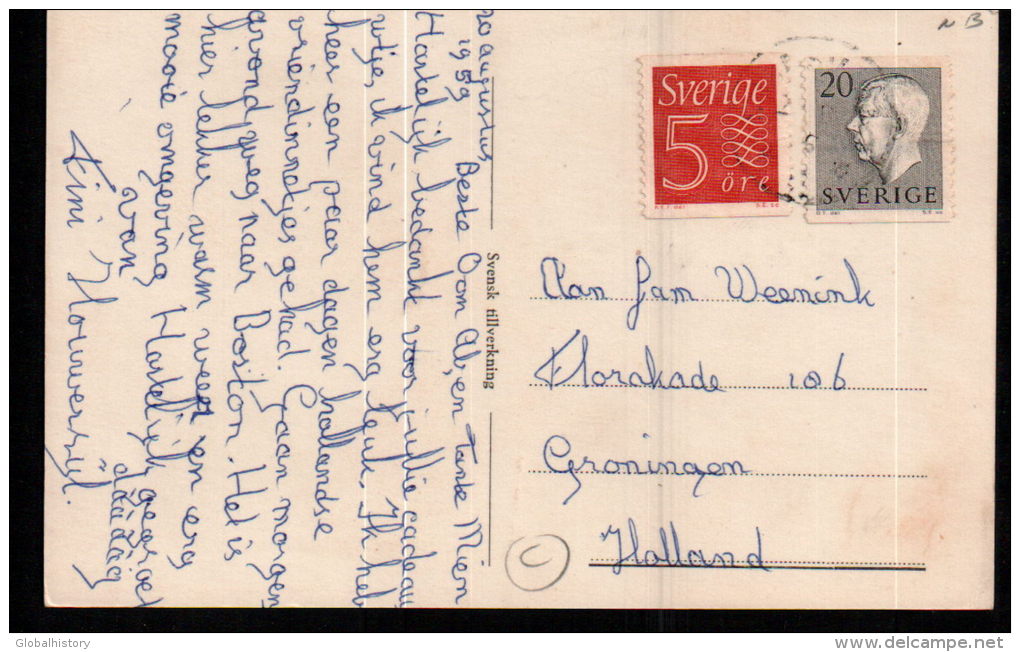 20 augustus
1959 Beste Oom Ab, en Tante Mien
Hartelijk bedankt voor jullie cadeau
utje, ik vind hem erg leuk. Ik heb
heer een paar dagen hollandse
vriendinnetjes gehad. Gaan morgen
avond weg naar Boston. Het is
hier lekker warm weer en erg
mooie omgeving Hartelijk gegroet
van dáááág
Fini Houwerzijl.
Svensk tillverkning
N B
Sverige
5
öre
20
SVERIGE
Aan fam Weenink
Florakade 106
Groningen
Holland
C
Globalhistory
www.delcampe.net